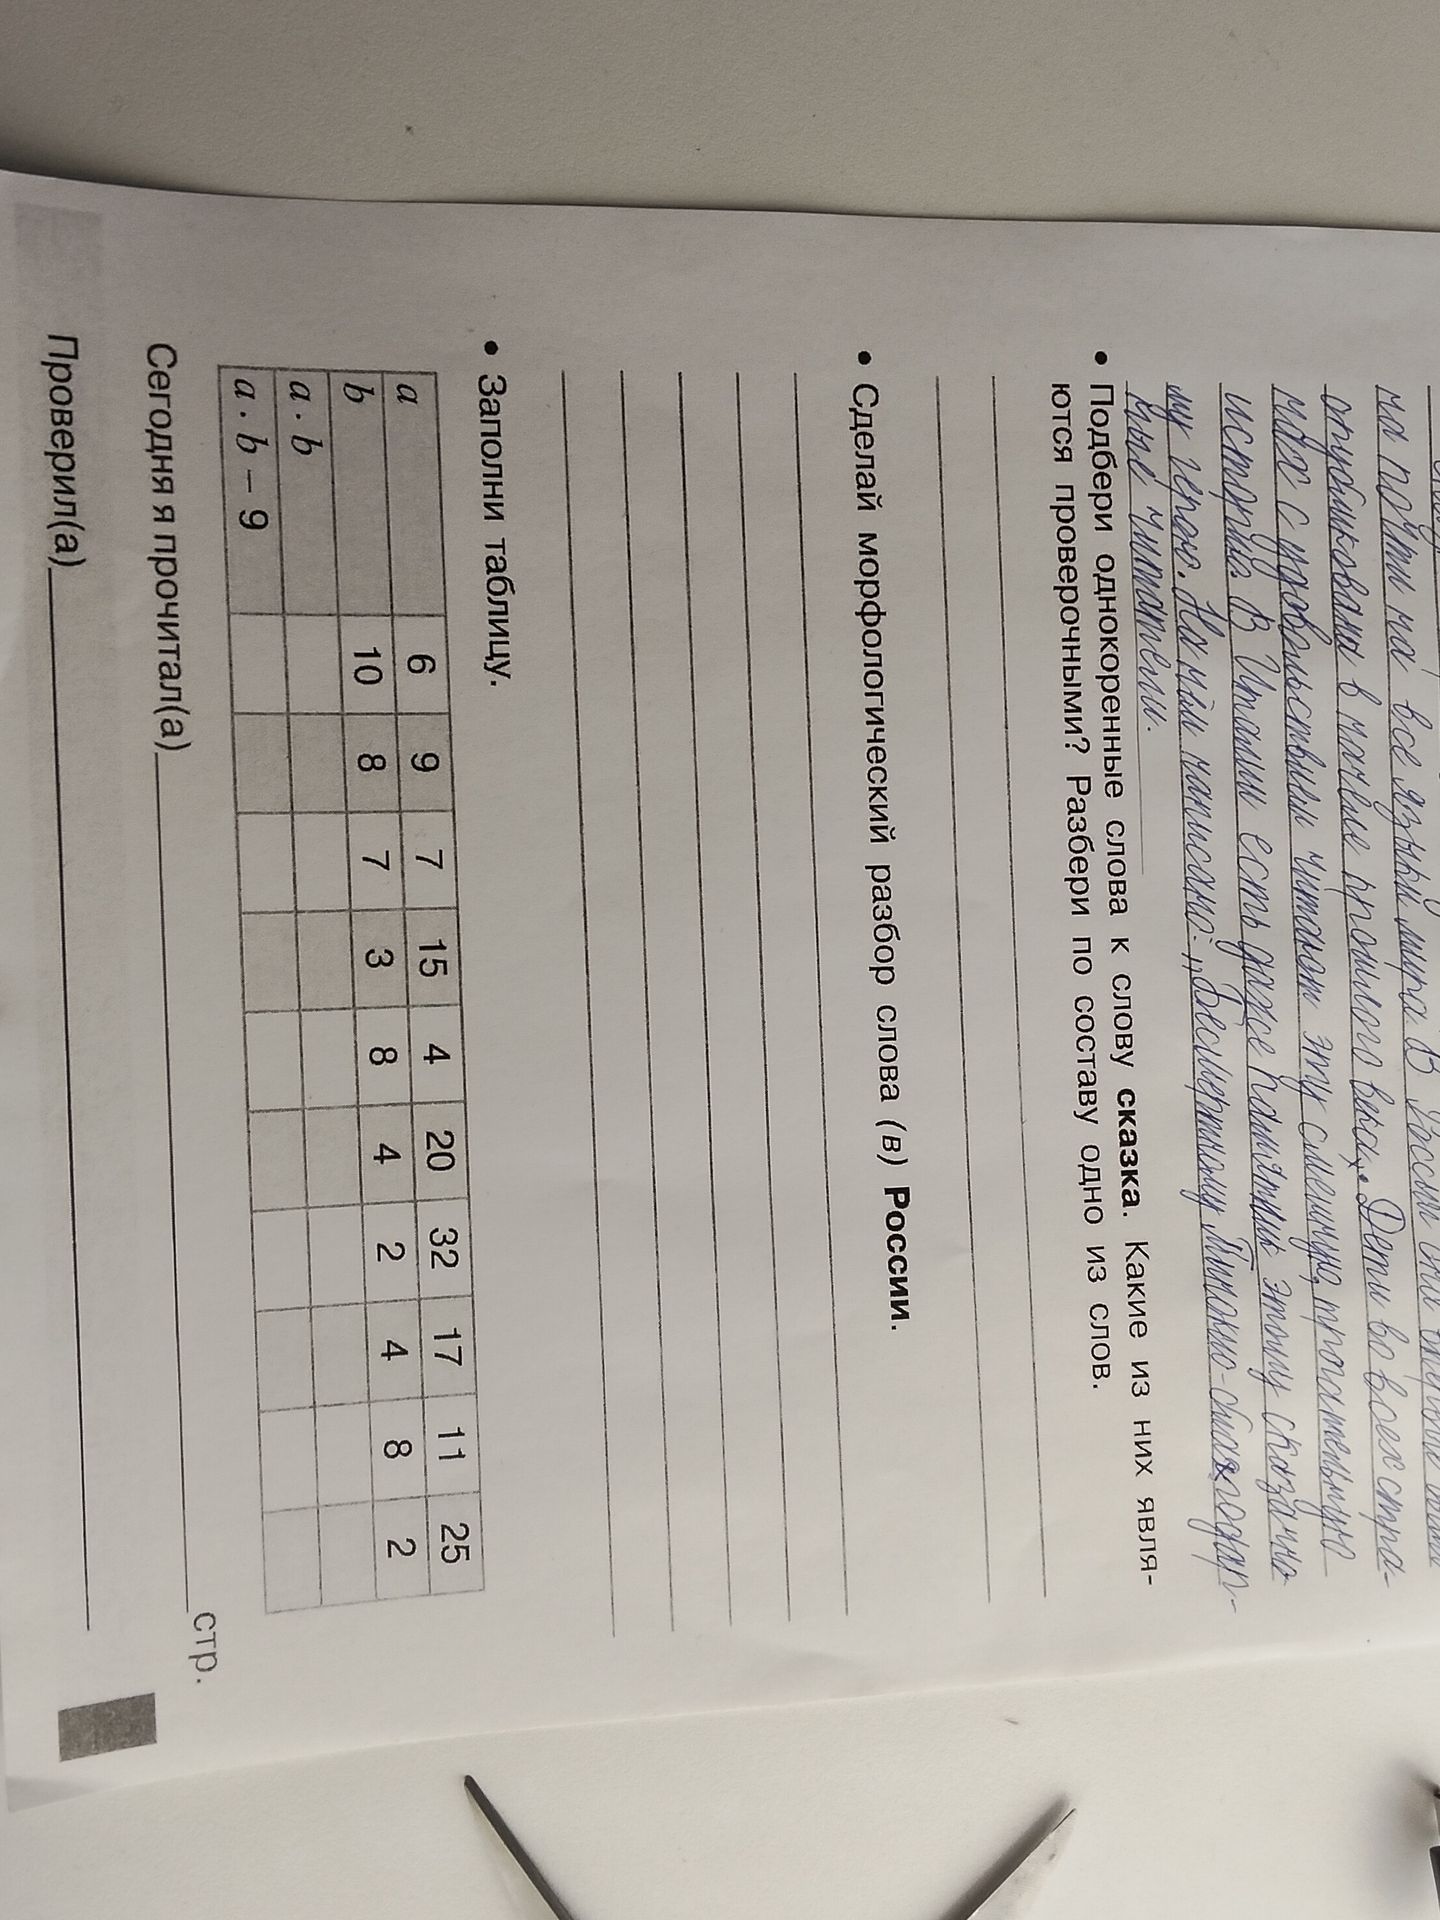 на почти на все языки мира. В России она впервые была
опубликована в начале прошлого века. Дети во всех стра-
нах с удовольствием читают эту смешную, трогательную
историю. В Италии есть даже памятник этому сказочно
му герою. На нём написано: „Бессмертному Пиноккио - благодар-
ные читатели.
• Подбери однокоренные слова к слову сказка. Какие из них явля-
ются проверочными? Разбери по составу одно из слов.
• Сделай морфологический разбор слова (в) России.
• Заполни таблицу.
a 6 9 7 15 4 20 32 17 11 25
b 10 8 7 3 8 4 2 4 8 2
a · b
a · b – 9
Сегодня я прочитал(а) стр.
Проверил(а)